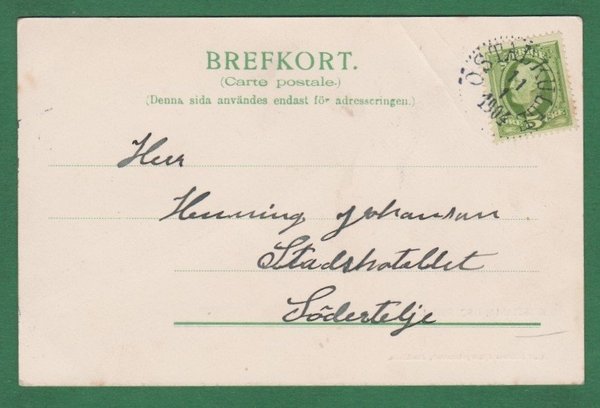 BREFKORT.
(Carte postale.)
(Denna sida användes endast för adresseringen.)
Herr
Henning Johansson
Stadshotellet
Södertelje
1904